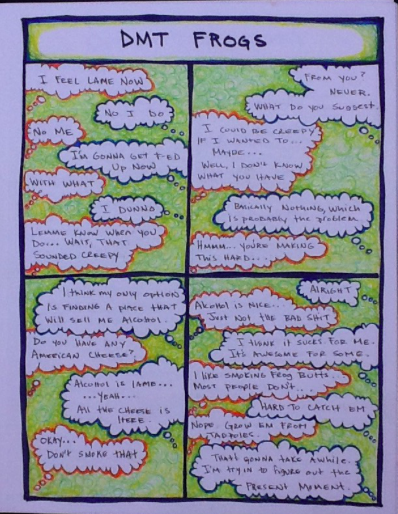 DMT FROGS
I FEEL LAME NOW
NO I DO
NO ME
I'm GONNA GET F-ED
UP NOW
WITH WHAT
I DUNNO
LEMME KNOW WHEN YOU
DO... WAIT, THAT
SOUNDED CREEPY
FROM YOU?
NEVER.
WHAT DO YOU SUGGEST.
I COULD BE CREEPY
IF I WANTED TO...
MAYBE...
WELL, I DON'T KNOW
WHAT YOU HAVE
BASICALLY NOTHING, WHICH
IS probably the problem
HMMM... YOU'RE MAKING
THIS HARD...
I THINK MY ONLY OPTION
IS FINDING A PLACE THAT
WILL SELL ME ALCOHOL.
DO YOU HAVE ANY
AMERICAN CHEESE?
ALCOHOL IS LAME...
...YEAH...
All THE CHEESE IS
HERE.
OKAY...
DON'T SMOKE THAT
ALRIGHT
Alcohol IS NICE...
JUST NOT THE BAD SHIT
I THINK IT SUCKS FOR ME.
IT'S AWESOME FOR SOME.
I LIKE SMOKING FROG BUTTS.
MOST PEOPLE DON'T...
HARD TO CATCH EM
NOPE GROW EM FROM
TADPOLES.
THAT'S GONNA TAKE AWHILE.
I'M TRYIN TO FIGURE OUT THE
PRESENT MOMENT.